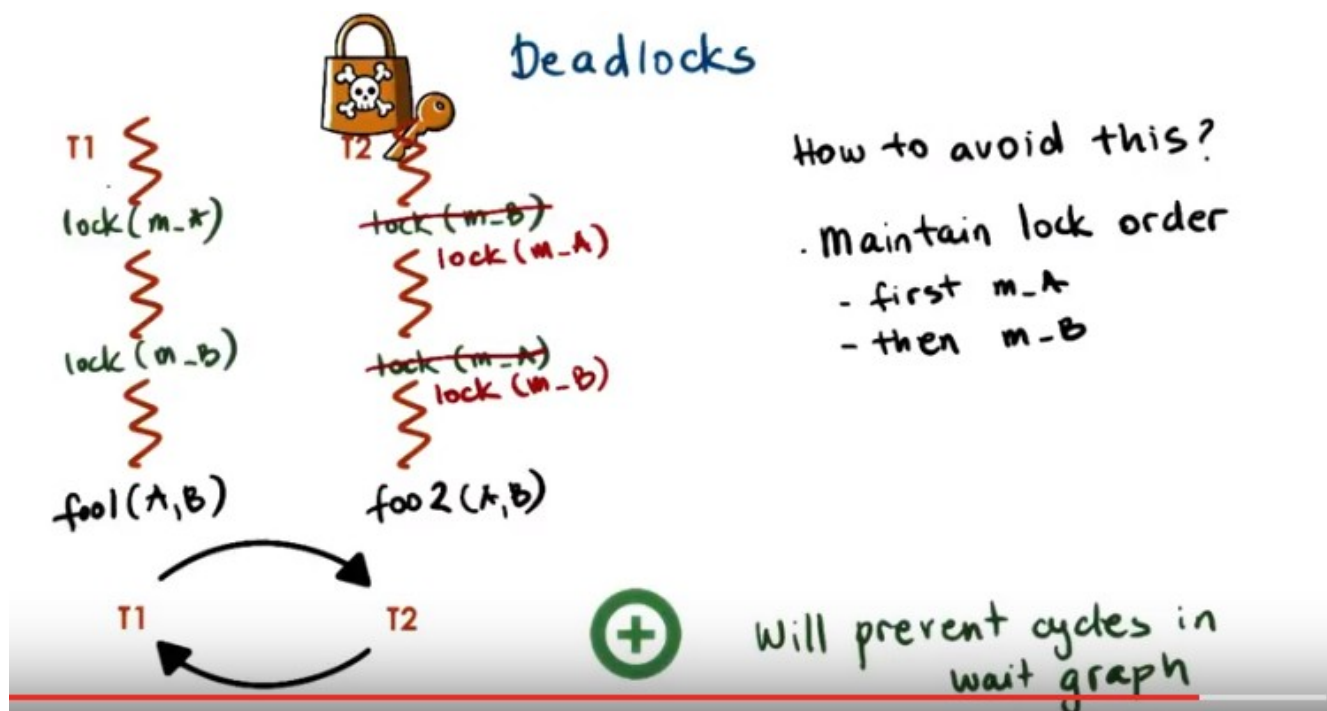 Deadlocks
T1
lock(m_A)
lock(m_B)
foo1(A,B)
T2
lock(m_B)
lock(m_A)
lock(m_A)
lock(m_B)
foo2(A,B)
T1
T2
How to avoid this?
. Maintain lock order
- first m_A
- then m_B
+
will prevent cycles in
wait graph